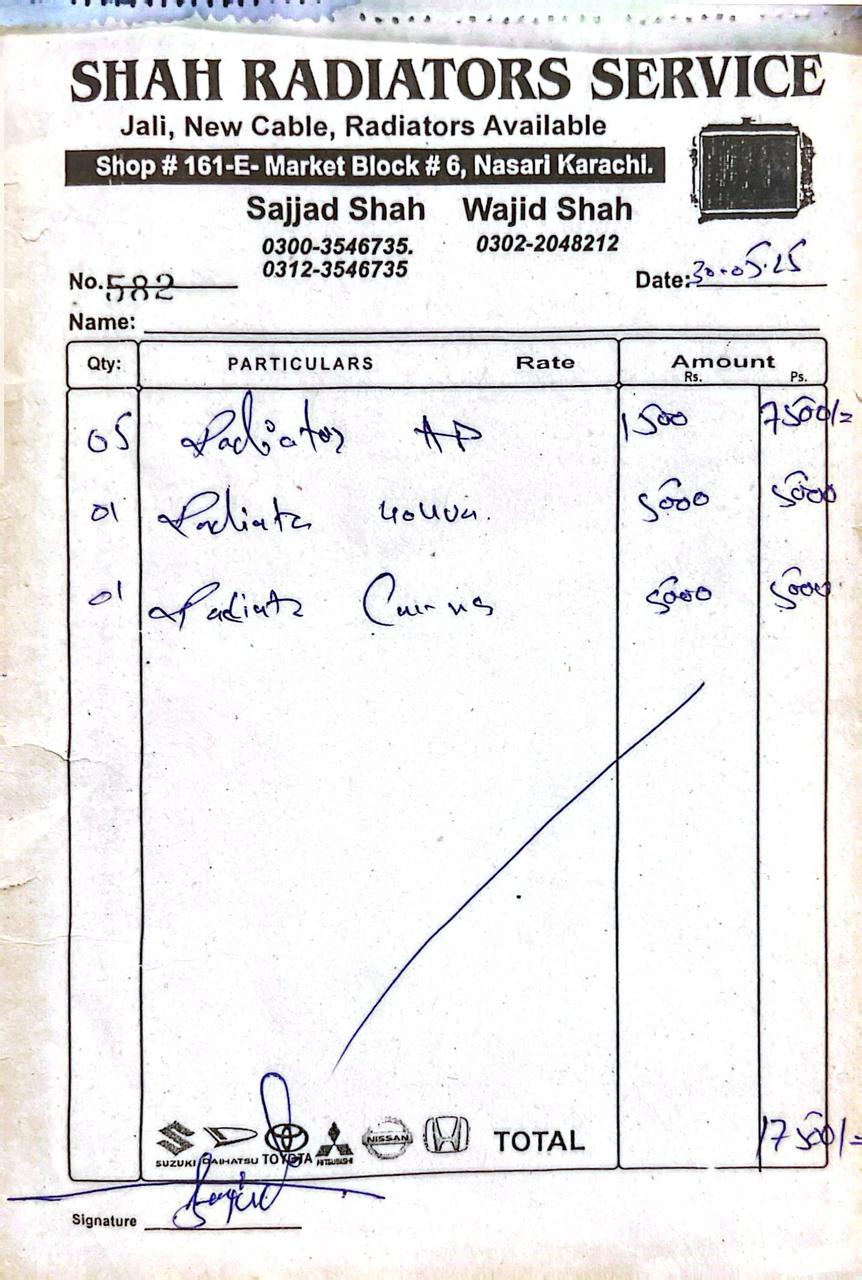 SHAH RADIATORS SERVICE
Jali, New Cable, Radiators Available
Shop # 161-E- Market Block # 6, Nasari Karachi.
Sajjad Shah Wajid Shah
0300-3546735. 0302-2048212
0312-3546735
No. 582 Date: 30-05-25
Name:
Qty: PARTICULARS Rate Amount
Rs. Ps.
05 Radiator AP 1500 7500/=
01 Radiator 5000 5000
01 Radiator 5000 5000
SUZUKI DAIHATSU TOYOTA MITSUBISHI NISSAN TOTAL 17500/=
Signature